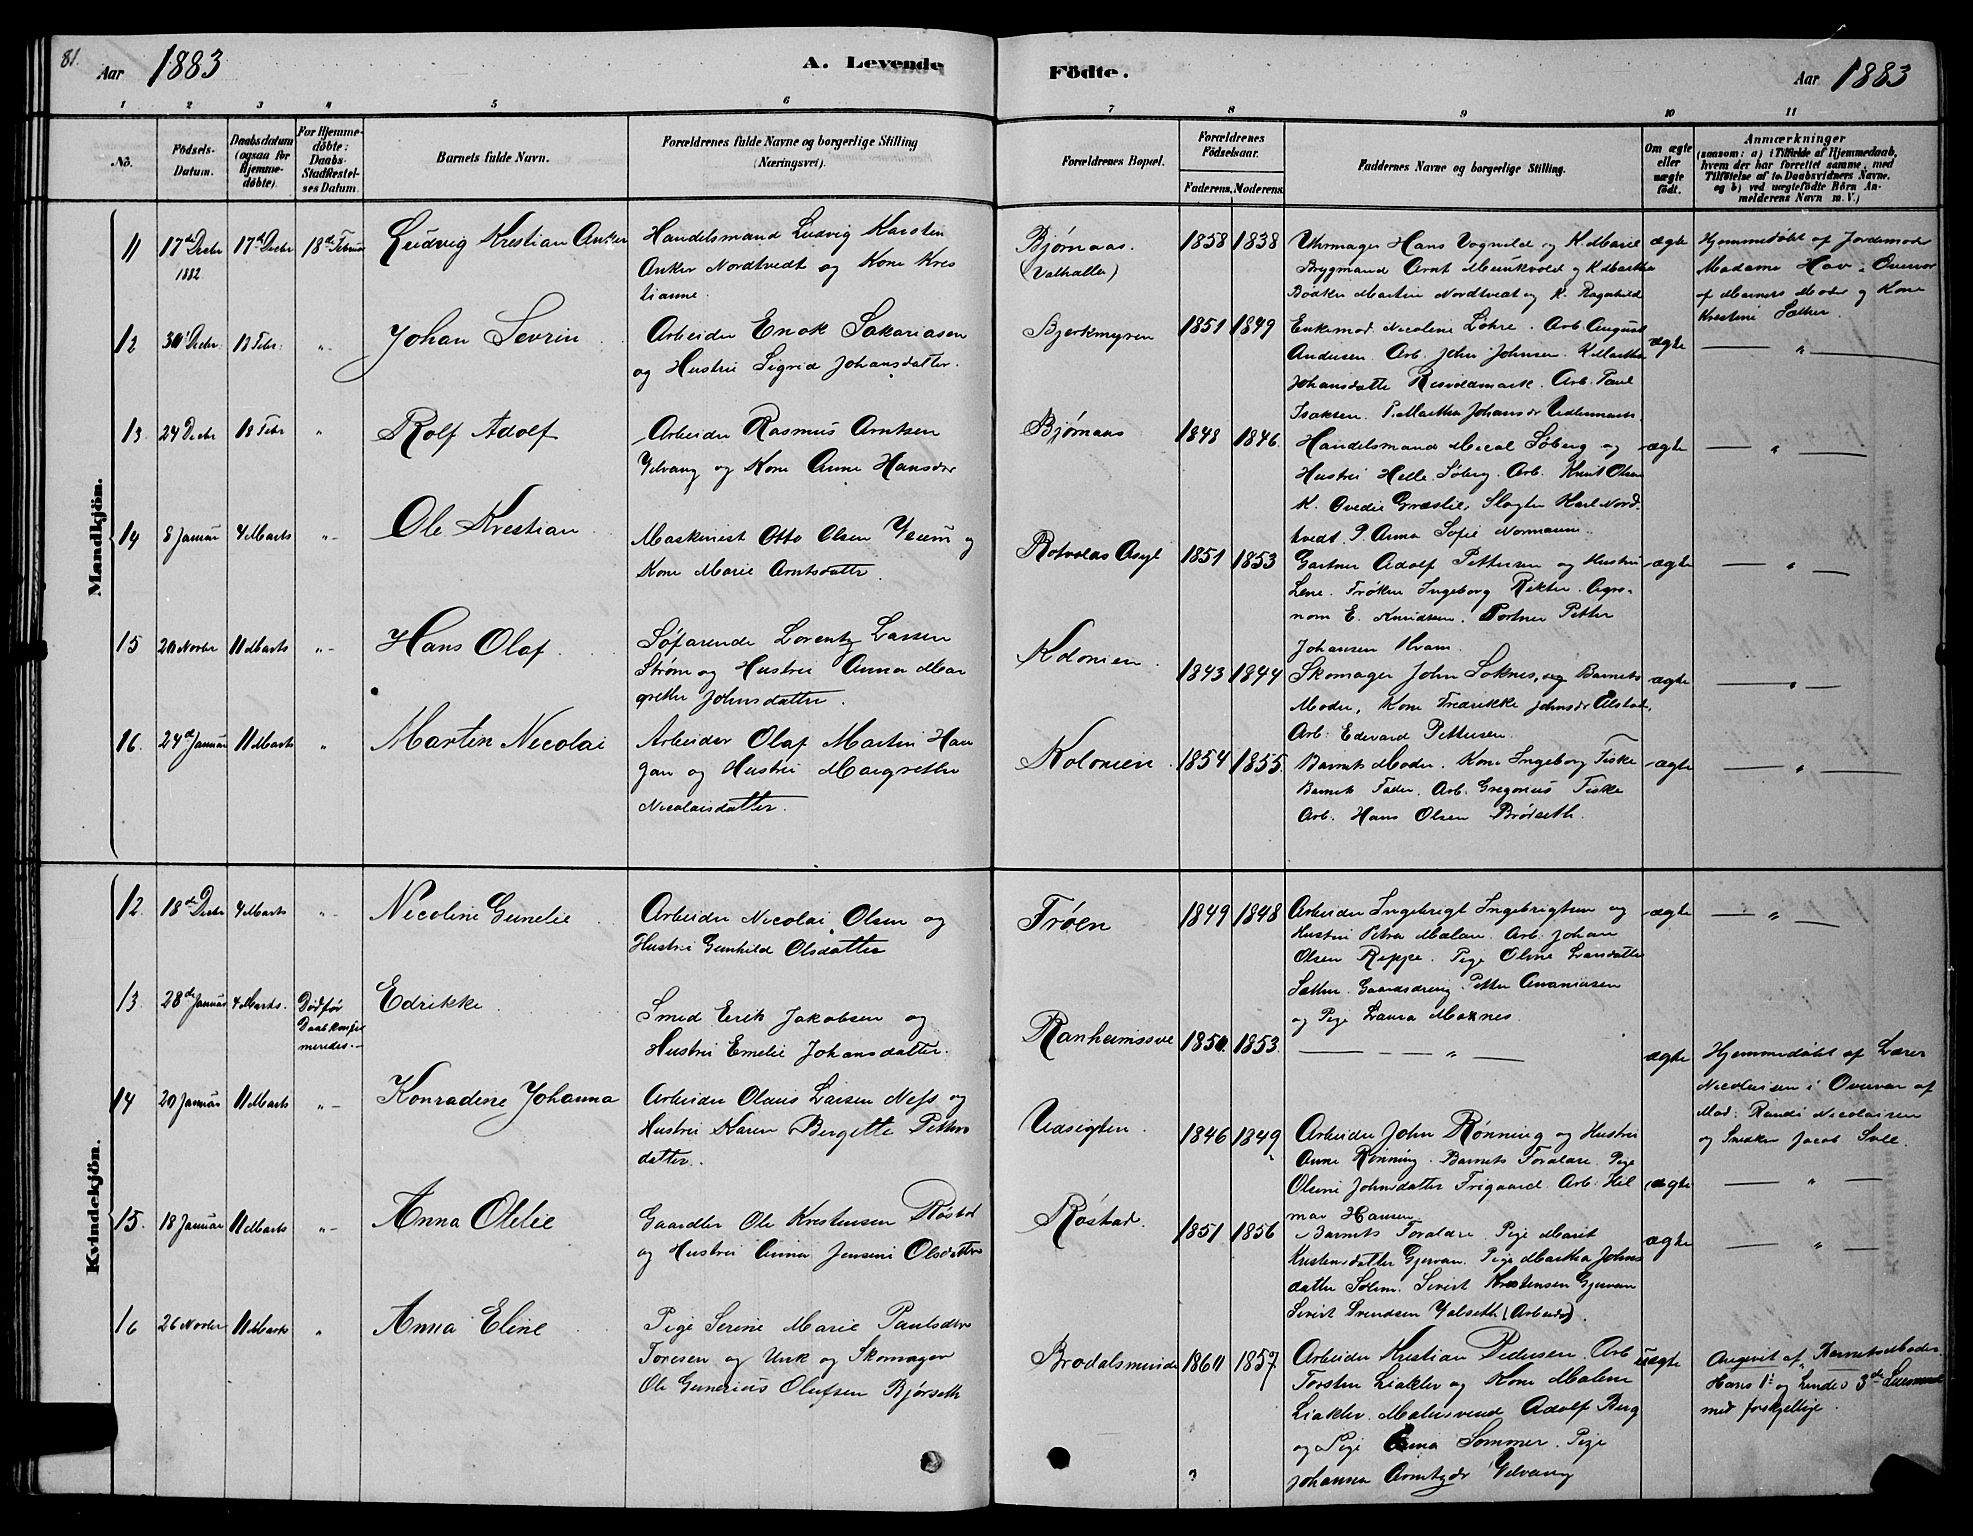 81.
Aar 1883
A. Levende
Födte.
Aar 1883
1 2 3 4 5 6 7 8 9 10 11
No.
Födsels-
Datum.
Daabsdatum
(ogsaa for
Hjemme-
döbte).
For Hjemme-
döbte:
Daabs-
Stadfæstel-
ses Datum.
Barnets fulde Navn.
Forældrenes fulde Navne og borgerlige Stilling
(Næringsvei).
Forældrenes Bopæl.
Forældrenes
Födselsaar.
Faderens. Moderens.
Faddernes Navne og borgerlige Stilling.
Om ægte
eller
uægte
födt.
Anmærkninger
(saasom: a) i Tilfælde af Hjemmedaab,
hvem der har forrettet samme, med
Tilföielse af to Daabsvidners Navne.
og b) ved uægtefödte Börn An-
melderens Navn m. V.)
Mandkjön.
11 17de Decbr 1882 17de Decbr 18de Februar
Ludvig Krestian Anker
Handelsmand Ludvig Karsten
Anker Nordtvedt og Kone Kres
tianne.
Bjørnaas.
(Valhalla)
1858 1838
Uhrmager Hans Vognild og K. Marie
Brygmand Arnt Munkvold og K. Martha
Bødker Martin Nordtvedt og K. Ragnhild
ægte
Hjemmedøbt af Jordemoder
Madame Hav i Overvær
af Barnets Moder og Kone
Krestine Sæther.
12 30 Decbr. 18 Febr. "
Johan Sevrin
Arbeider Enok Sakariasen
og Hustru Sigrid Johansdatter.
Bjerkmyren
1851 1849
Enkemad. Nicoline Löhre. Arb. August
Andersen. Arb. John Johnsen. K. Martha
Johansdatter Risvoldmark. Arb. Paul
Isaksen. P. Martha Johansdr
ægte
"
13. 24 Decbr 18 Febr "
Rolf Adolf
Arbeider Rasmus Arntsen
Velvang og Kone Anne Hansdtr
Bjørnaas
1848 1846.
Handelsmand Søberg og
Hustru Helle Søberg. Arb. Knut Olsen
K. Ovedie Græslie, Slagter Karl Nord-
tvedt. P. Anna Sofie Normann.
ægte
"
14 8 Januar 4 Marts "
Ole Krestian
Maskinist Otto Olsen og
Kone Marie Arntsdatter.
Rotvolds Asyl
1851 1853
Gartner Adolf Pettersen og Hustru
Lene. Frøken Ingeborg Rikter. Agro-
nom E. Knudsen. Portner Petter
Johansen Hvam.
ægte
"
15 20 Novbr 11 Marts "
Hans Olaf.
Søfarende Lorentz Larsen
Strøm og Hustru Anna Mar
grethe Johnsdatter.
Kolonien.
1843 1844
Skomager John Soknes, og Barnets
Moder, Kone Fredrikke Johnsdr Alstad,
Arb. Edevard Pettersen.
ægte
"
16. 24de Januar 11 Marts "
Martin Nicolai
Arbeider Olaf Martin Hau
gan og Hustru Margrethe
Nicolaisdatter.
Kolonien.
1854 1855.
Barnets Moder. Kone Ingeborg Fiske
Barnets Fader. Arb. Gregorius Fiske
Arb. Hans Olsen Brøtseth.
ægte
"
Kvindekjön.
12. 18de Decbr 4 Marts "
Nicoline Gunelie
Arbeider Nicolai Olsen og
Hustru Gunhild Olsdatter
Frøen
1849 1848
Arbeider Ingebrigt Ingebrigtsen og
Hustru Petra Malan. Arb. Johan
Olsen Reppe. Pige Oline Larsdatter
Sæther. Gaardsdreng Petter Ananiasen
og Pige Laura Moxnes.
ægte
"
13. 28de Januar 4 Marts.
Død før
Daab konfir
meredes.
Edrikke.
Smed Erik Jakobsen og
Hustru Emelie Johansdatter.
Ranheimssve
1850. 1853.
"
ægte
Hjemmedøbt af Lærer
Nicolaisen i Overvær af
Mad. Randi Nicolaisen
og Snedker Jacob Sve.
14 20 Januar 11 Marts "
Konradine Johanna
Arbeider Olaus Larsen Næss og
Hustru Karen Bergette Petters
datter.
Udsigten.
1846 1849
Arbeider John Rønning og Hustru
Anne Rønning. Barnets Forældre. Pige
Olsine Johnsdatter Frigaard. Arb. Hil
mar Hansen.
ægte
"
15. 18 Januar 11 Marts "
Anna Olelie
Gaardbr Ole Krestensen Røstad
og Hustru Anna Jensine Olsdatter
Røstad.
1851 1856
Barnets Forældre. Pige Marit
Kristensdatter Gjervan. Pige Martha Johns
datter Solem. Sivert Krestensen Gjervan
Sivert Svendsen Valseth (Arbeider).
ægte
"
16 26 Novbr 11 Marts "
Anna Eline
Pige Serine Marie Paulsdtr
Toresen og Unk og Skomager
Ole Gunerius Olufsen Bjørseth
Brodalsminde
1860 1857
Arbeider Kristian Pedersen Arb
Torsten Liaklev og Kone Malene
Liaklev. Malersvend Adolf Berg
og Pige Anna Sommer. Pige
Johanna Arntzdr Velvang
uægte
Angivet af Barnets Moder
Hans 1te og hendes 3de Leiermaal
med forskjellige.